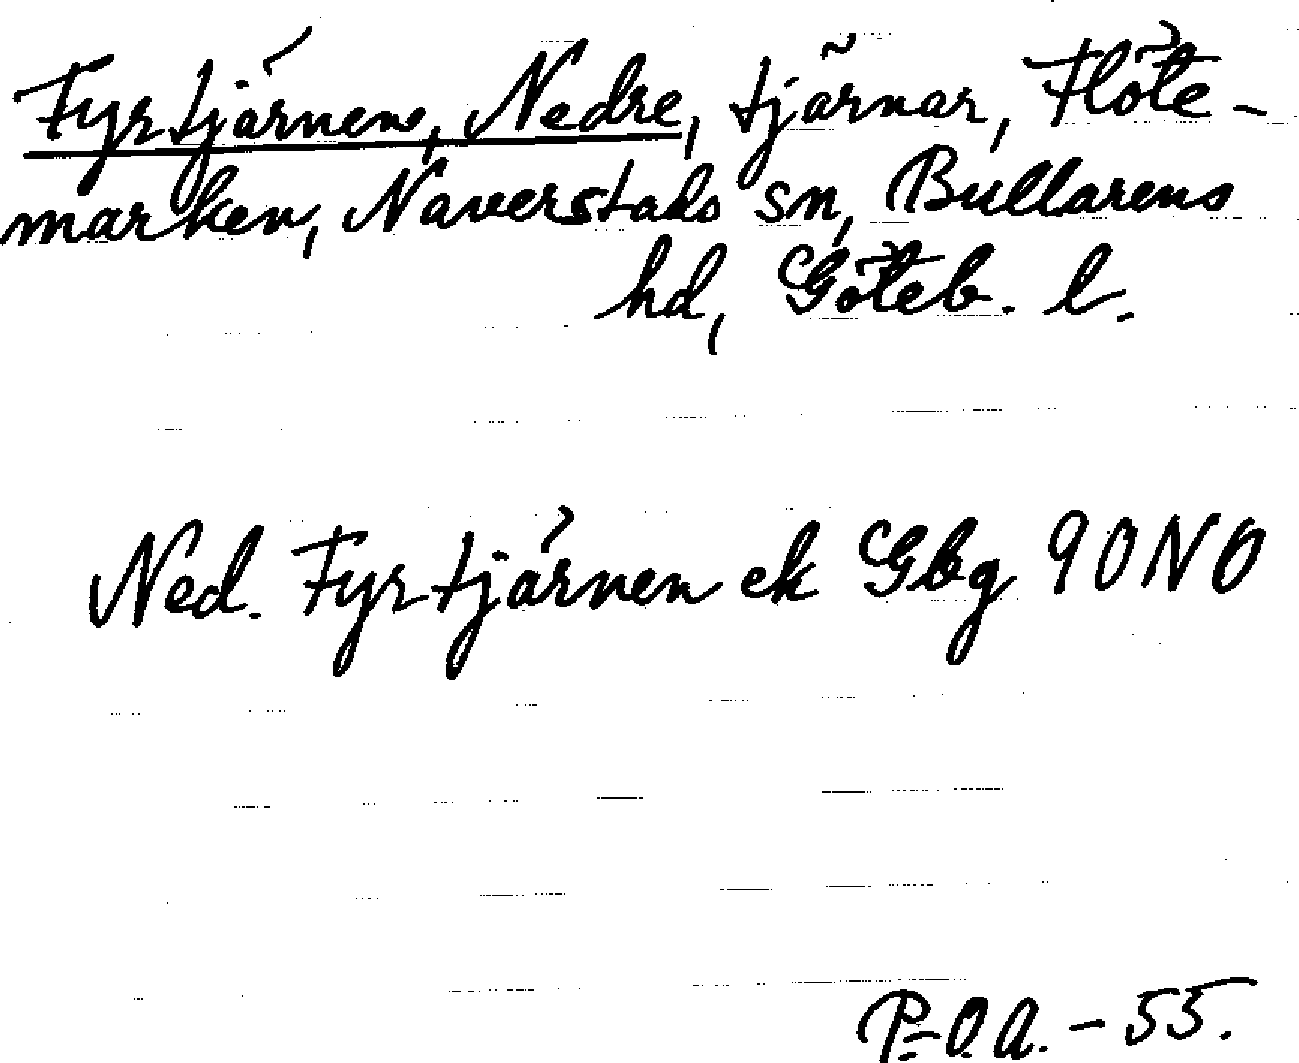 Fyrtjärnen, Nedre, tjärnar, Flöte-
marken, Naverstads sn, Bullarens
hd, Göteb. l.
Ned. Fyrtjärnen ek Gbg 90NO
P-O.A. - 55.